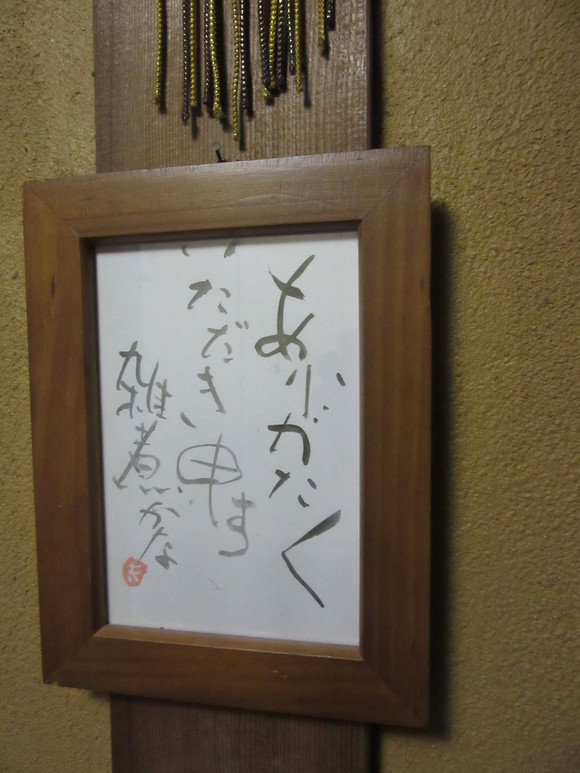 ありがたく
いただき申す
雑煮かな